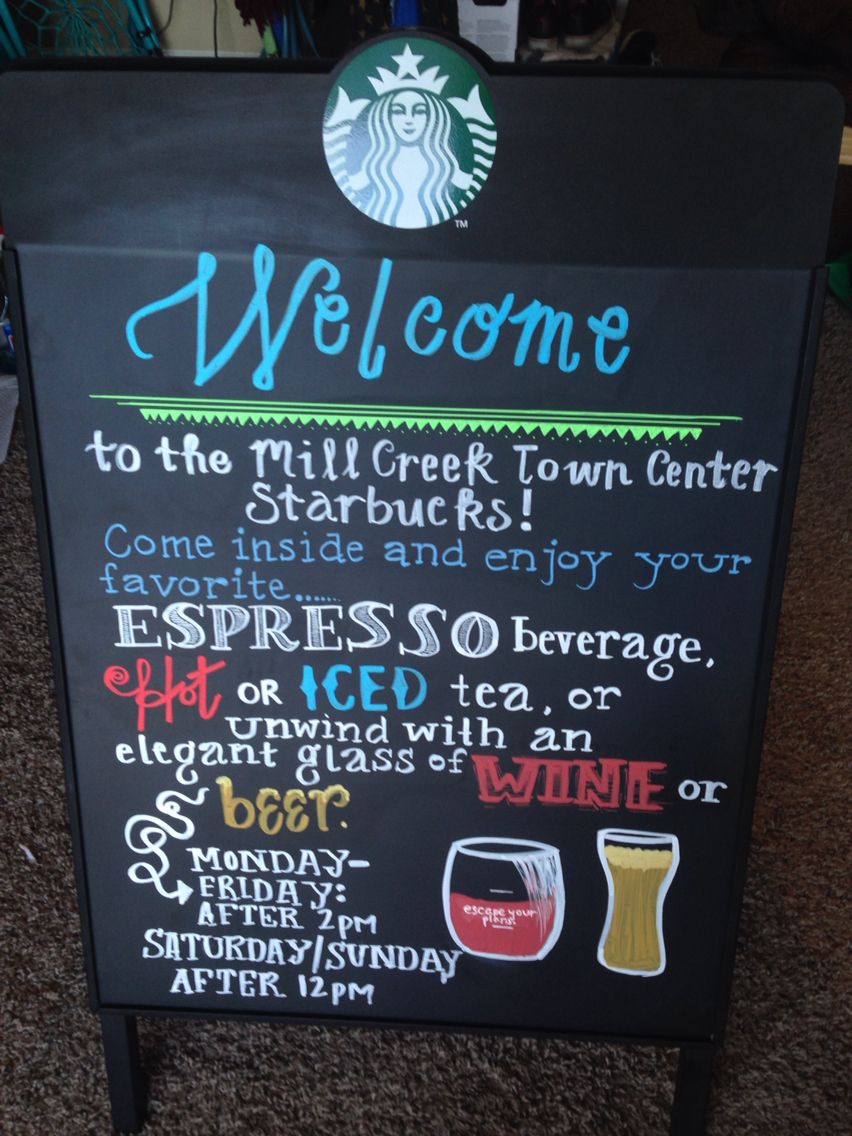 TM
Welcome
to the Mill Creek Town Center
Starbucks!
Come inside and enjoy your
favorite......
ESPRESSO beverage,
Hot OR ICED tea, or
unwind with an
elegant glass of WINE or
beer.
MONDAY-
FRIDAY:
AFTER 2PM
SATURDAY/SUNDAY
AFTER 12PM
escape your
plans.